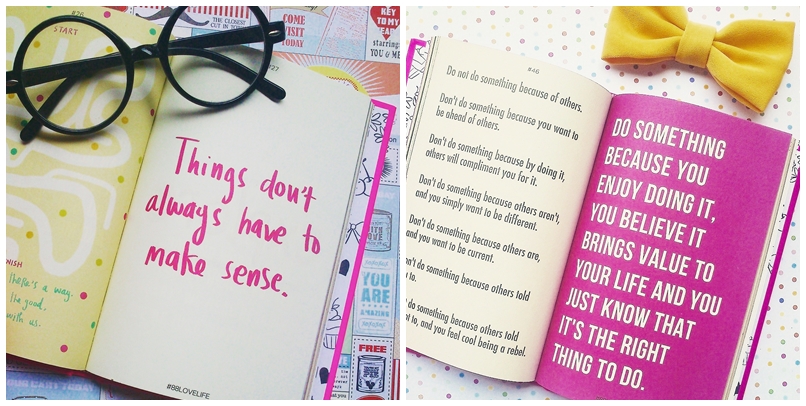 #26
START
NISH
there's a way.
the good,
with us.
#27
Things don't
always have to
make sense.
#88LOVELIFE
THE CLOSEST
COME
VISIT
TODAY
KEY
TO MY
starring
YOU & ME
WITH
LOVE
YOU
ARE
AMAZING
FREE
#46
Do not do something because of others.
Don't do something because you want to
be ahead of others.
Don't do something because by doing it,
others will compliment you for it.
Don't do something because others aren't,
and you simply want to be different.
Don't do something because others are,
and you want to be current.
on't do something because others told
to.
do something because others told
t to, and you feel cool being a rebel.
DO SOMETHING
BECAUSE YOU
ENJOY DOING IT,
YOU BELIEVE IT
BRINGS VALUE TO
YOUR LIFE AND YOU
JUST KNOW THAT
IT'S THE RIGHT
THING TO DO.